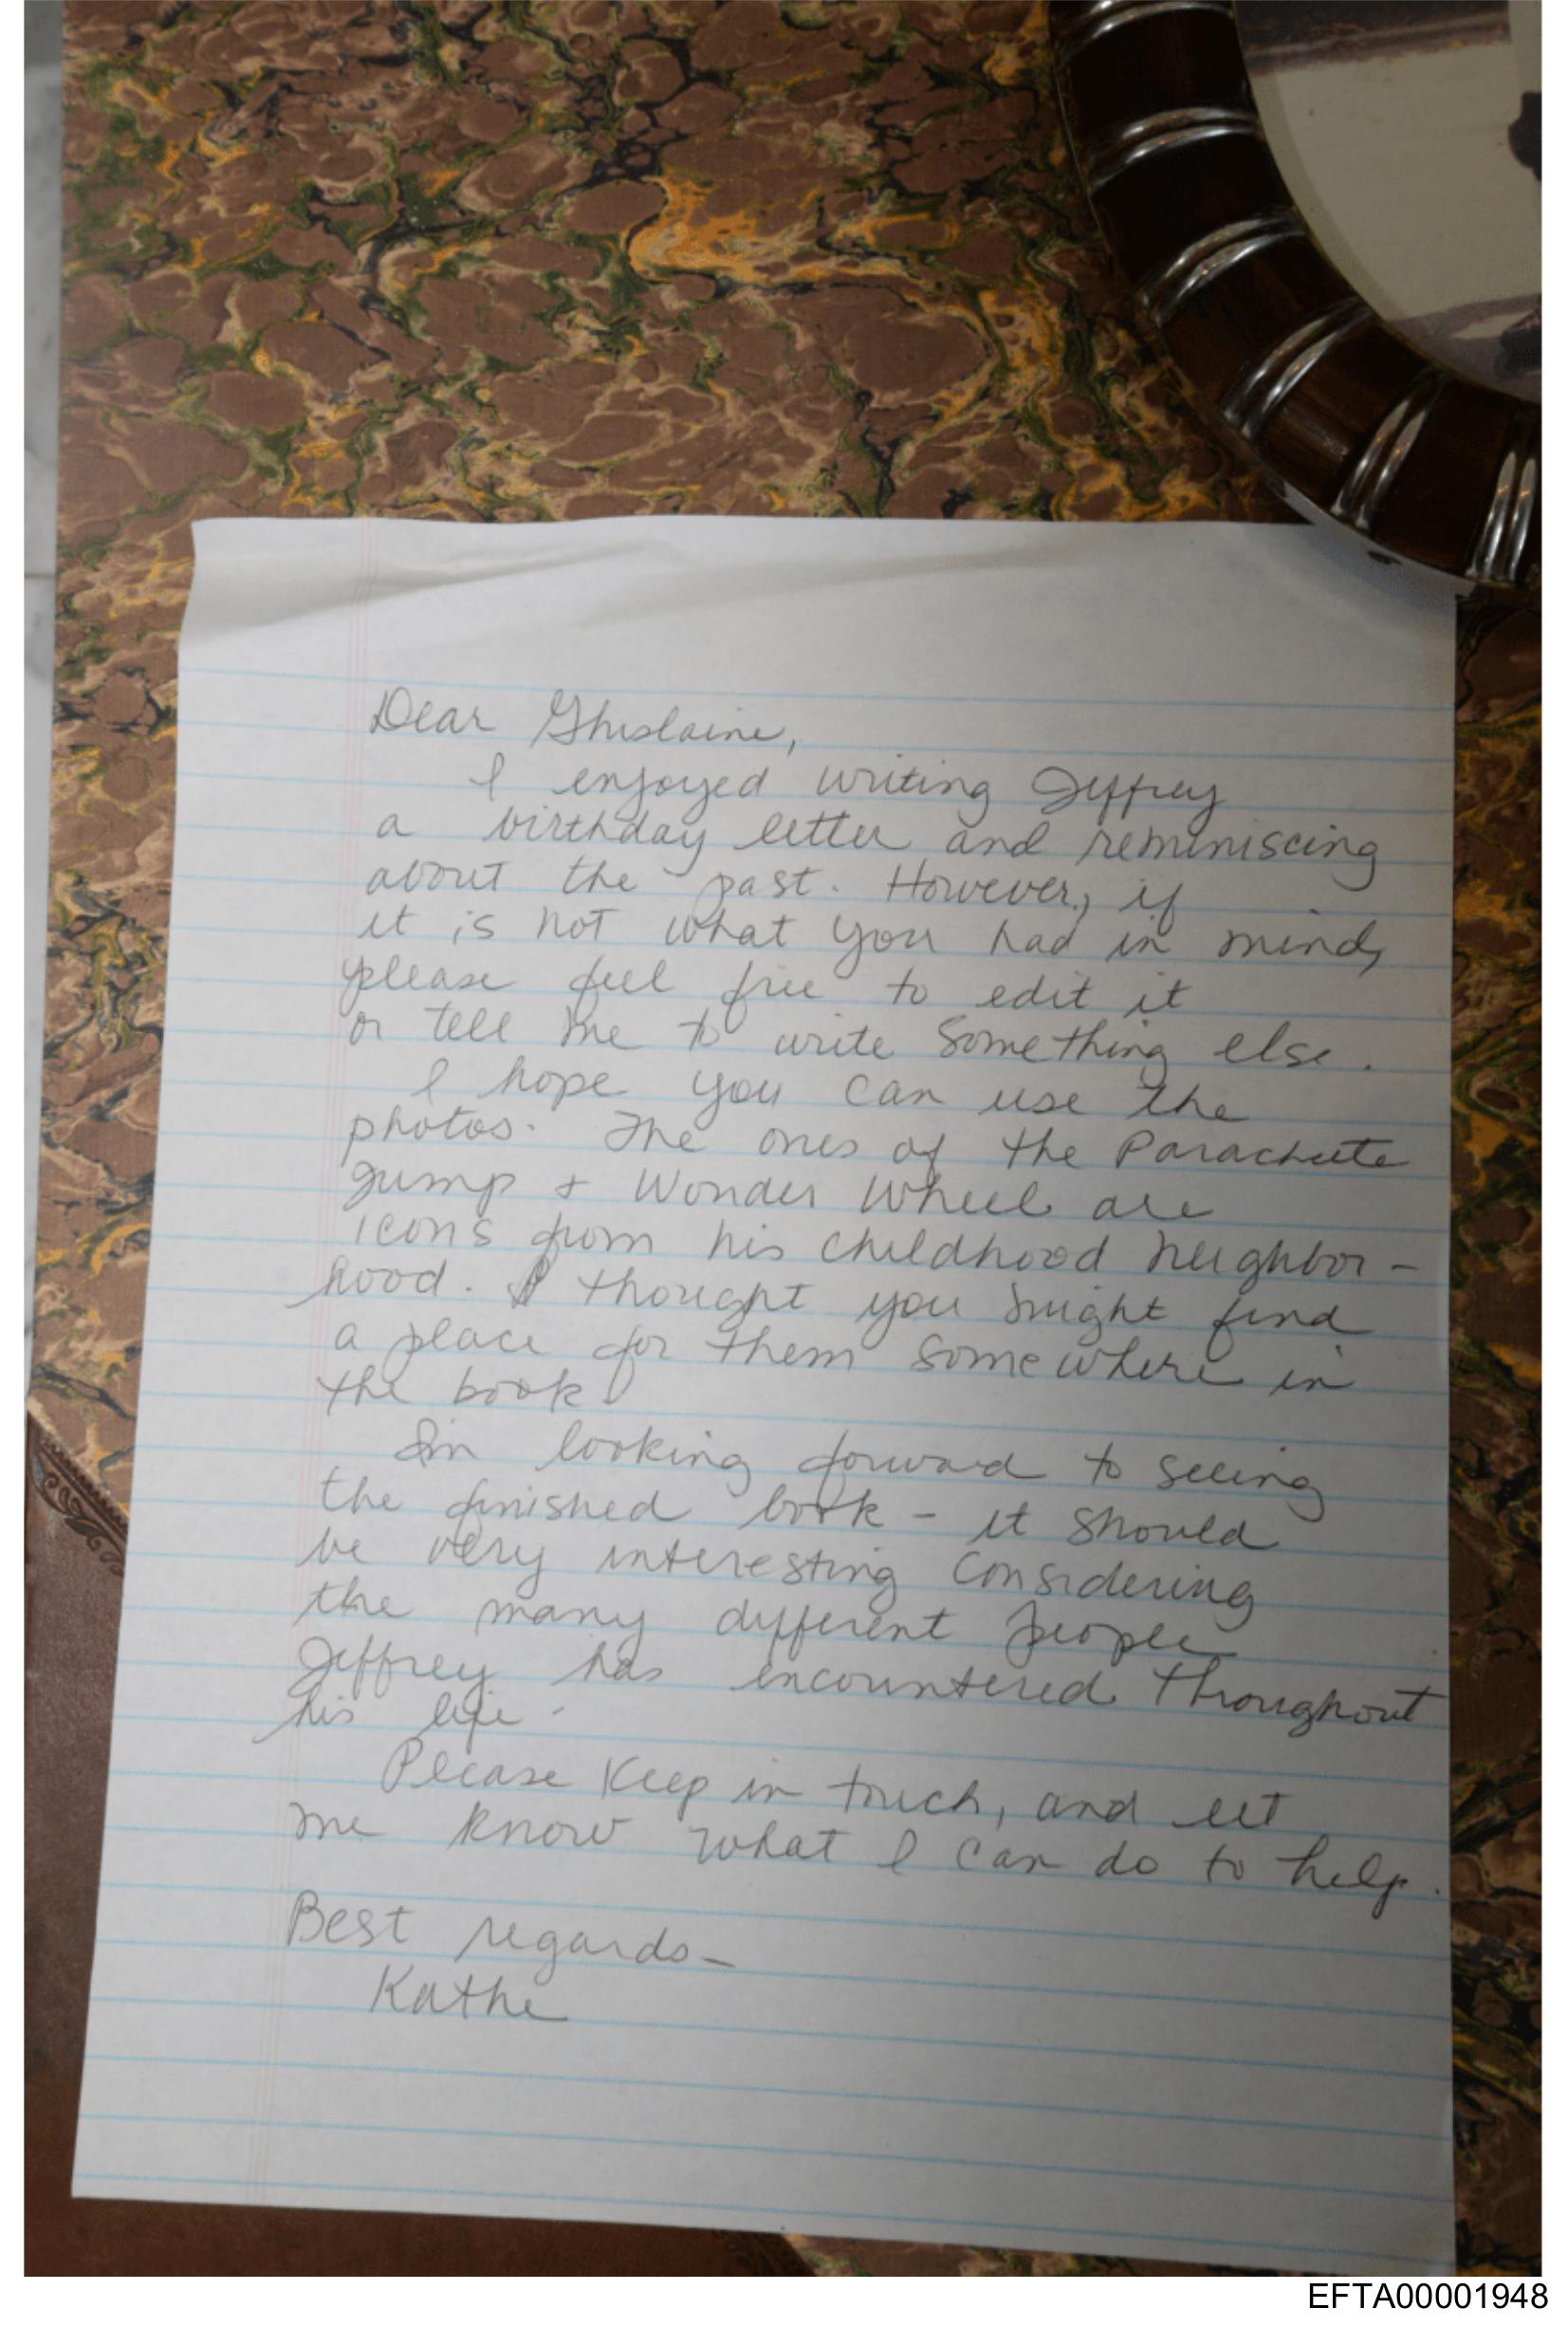 Dear Ghislaine,
I enjoyed writing Jeffrey
a birthday letter and reminiscing
about the past. However, if
it is not what you had in mind,
please feel free to edit it
or tell me to write something else.
I hope you can use the
photos. The ones of the Parachute
Jump + Wonder Wheel are
icons from his childhood neighbor-
hood. I thought you might find
a place for them somewhere in
the book.
I'm looking forward to seeing
the finished book - it should
be very interesting considering
the many different people
Jeffrey has encountered throughout
his life.
Please keep in touch, and let
me know what I can do to help.
Best regards-
Kathe
EFTA00001948